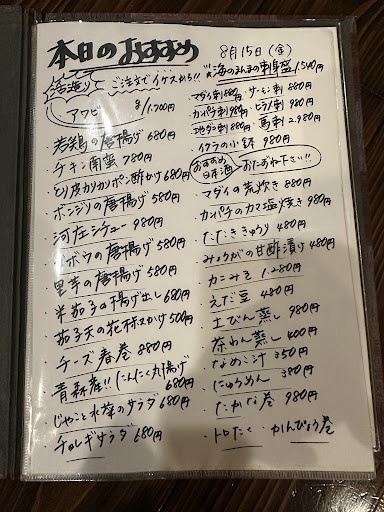 本日のおすすめ
8月15日(金)
活造り
ご注文でイケスから!!
アワビ 1,700円
・若鶏の唐揚げ 680円
・チキン南蛮 780円
・とり皮カリカリポン酢かけ 580円
・ボンジリの唐揚げ 580円
・河庄シチュー 980円
ゴボウの唐揚げ 580円
・里芋の唐揚げ 580円
・米茄子の揚げ出し 680円
・茄子天の花かつおかけ 500円
・チーズ春巻 880円
・青森産!!にんにく丸揚げ 680円
・じゃこと水菜のサラダ 680円
・チョレギサラダ 680円
海のさんまの刺身盛 1,540円
・マダイ刺 880円 ・サーモン刺 880円
・カンパチ刺 980円 ・ヒラメ刺 980円
・馬刺 2,980円
・イクラの小鉢 980円
おすすめ日本酒 おたずね下さい!!
・マダイの荒炊き 880円
・カンパチのカマ塩焼き 980円
・たたききゅうり 480円
・みょうがの甘酢漬け 480円
・カニみそ 1,280円
・えだ豆 480円
・土びん蒸し 980円
・茶わん蒸し 400円
・なめこ汁 350円
・にゅうめん 380円
・たかな巻 980円
・トロたく・かんぴょう巻